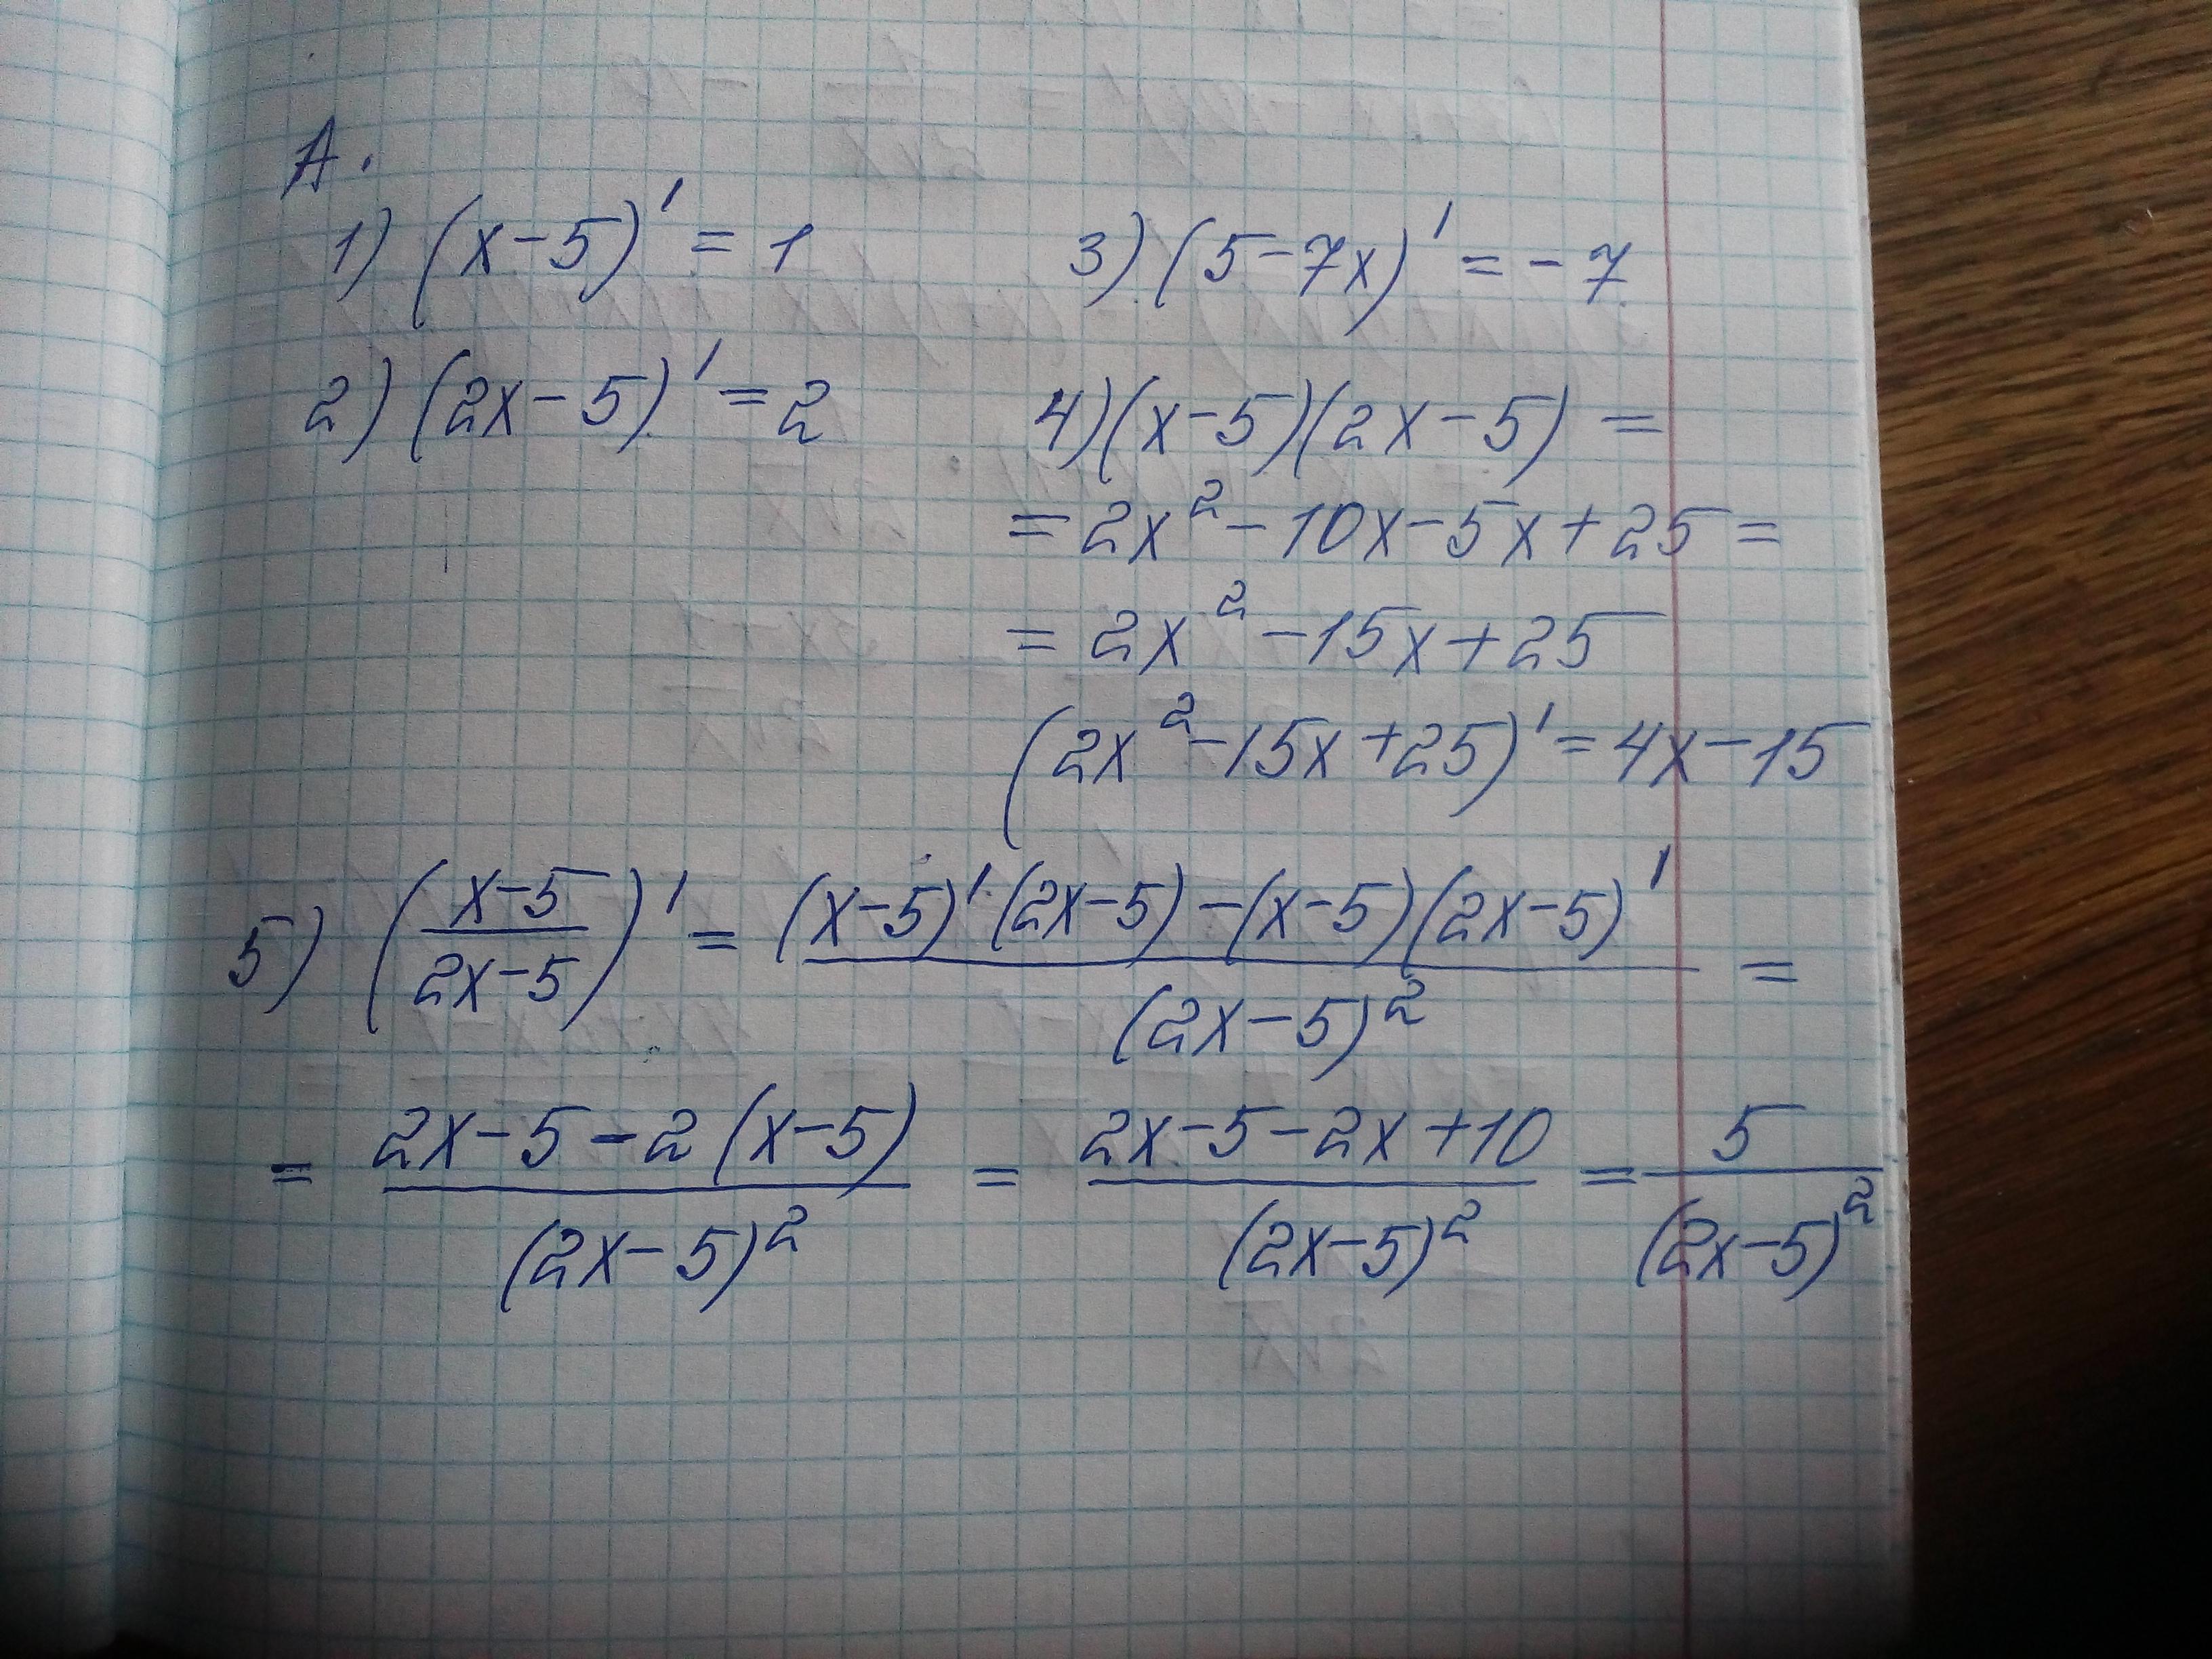 А.
1) (x-5)' = 1
2) (2x-5)' = 2
3) (5-7x)' = -7
4) (x-5)(2x-5) =
= 2x² - 10x - 5x + 25 =
= 2x² - 15x + 25
(2x² - 15x + 25)' = 4x - 15
5) ((x-5)/(2x-5))' = ((x-5)'·(2x-5) - (x-5)(2x-5)')/(2x-5)² =
= (2x-5-2(x-5))/(2x-5)² = (2x-5-2x+10)/(2x-5)² = 5/(2x-5)²